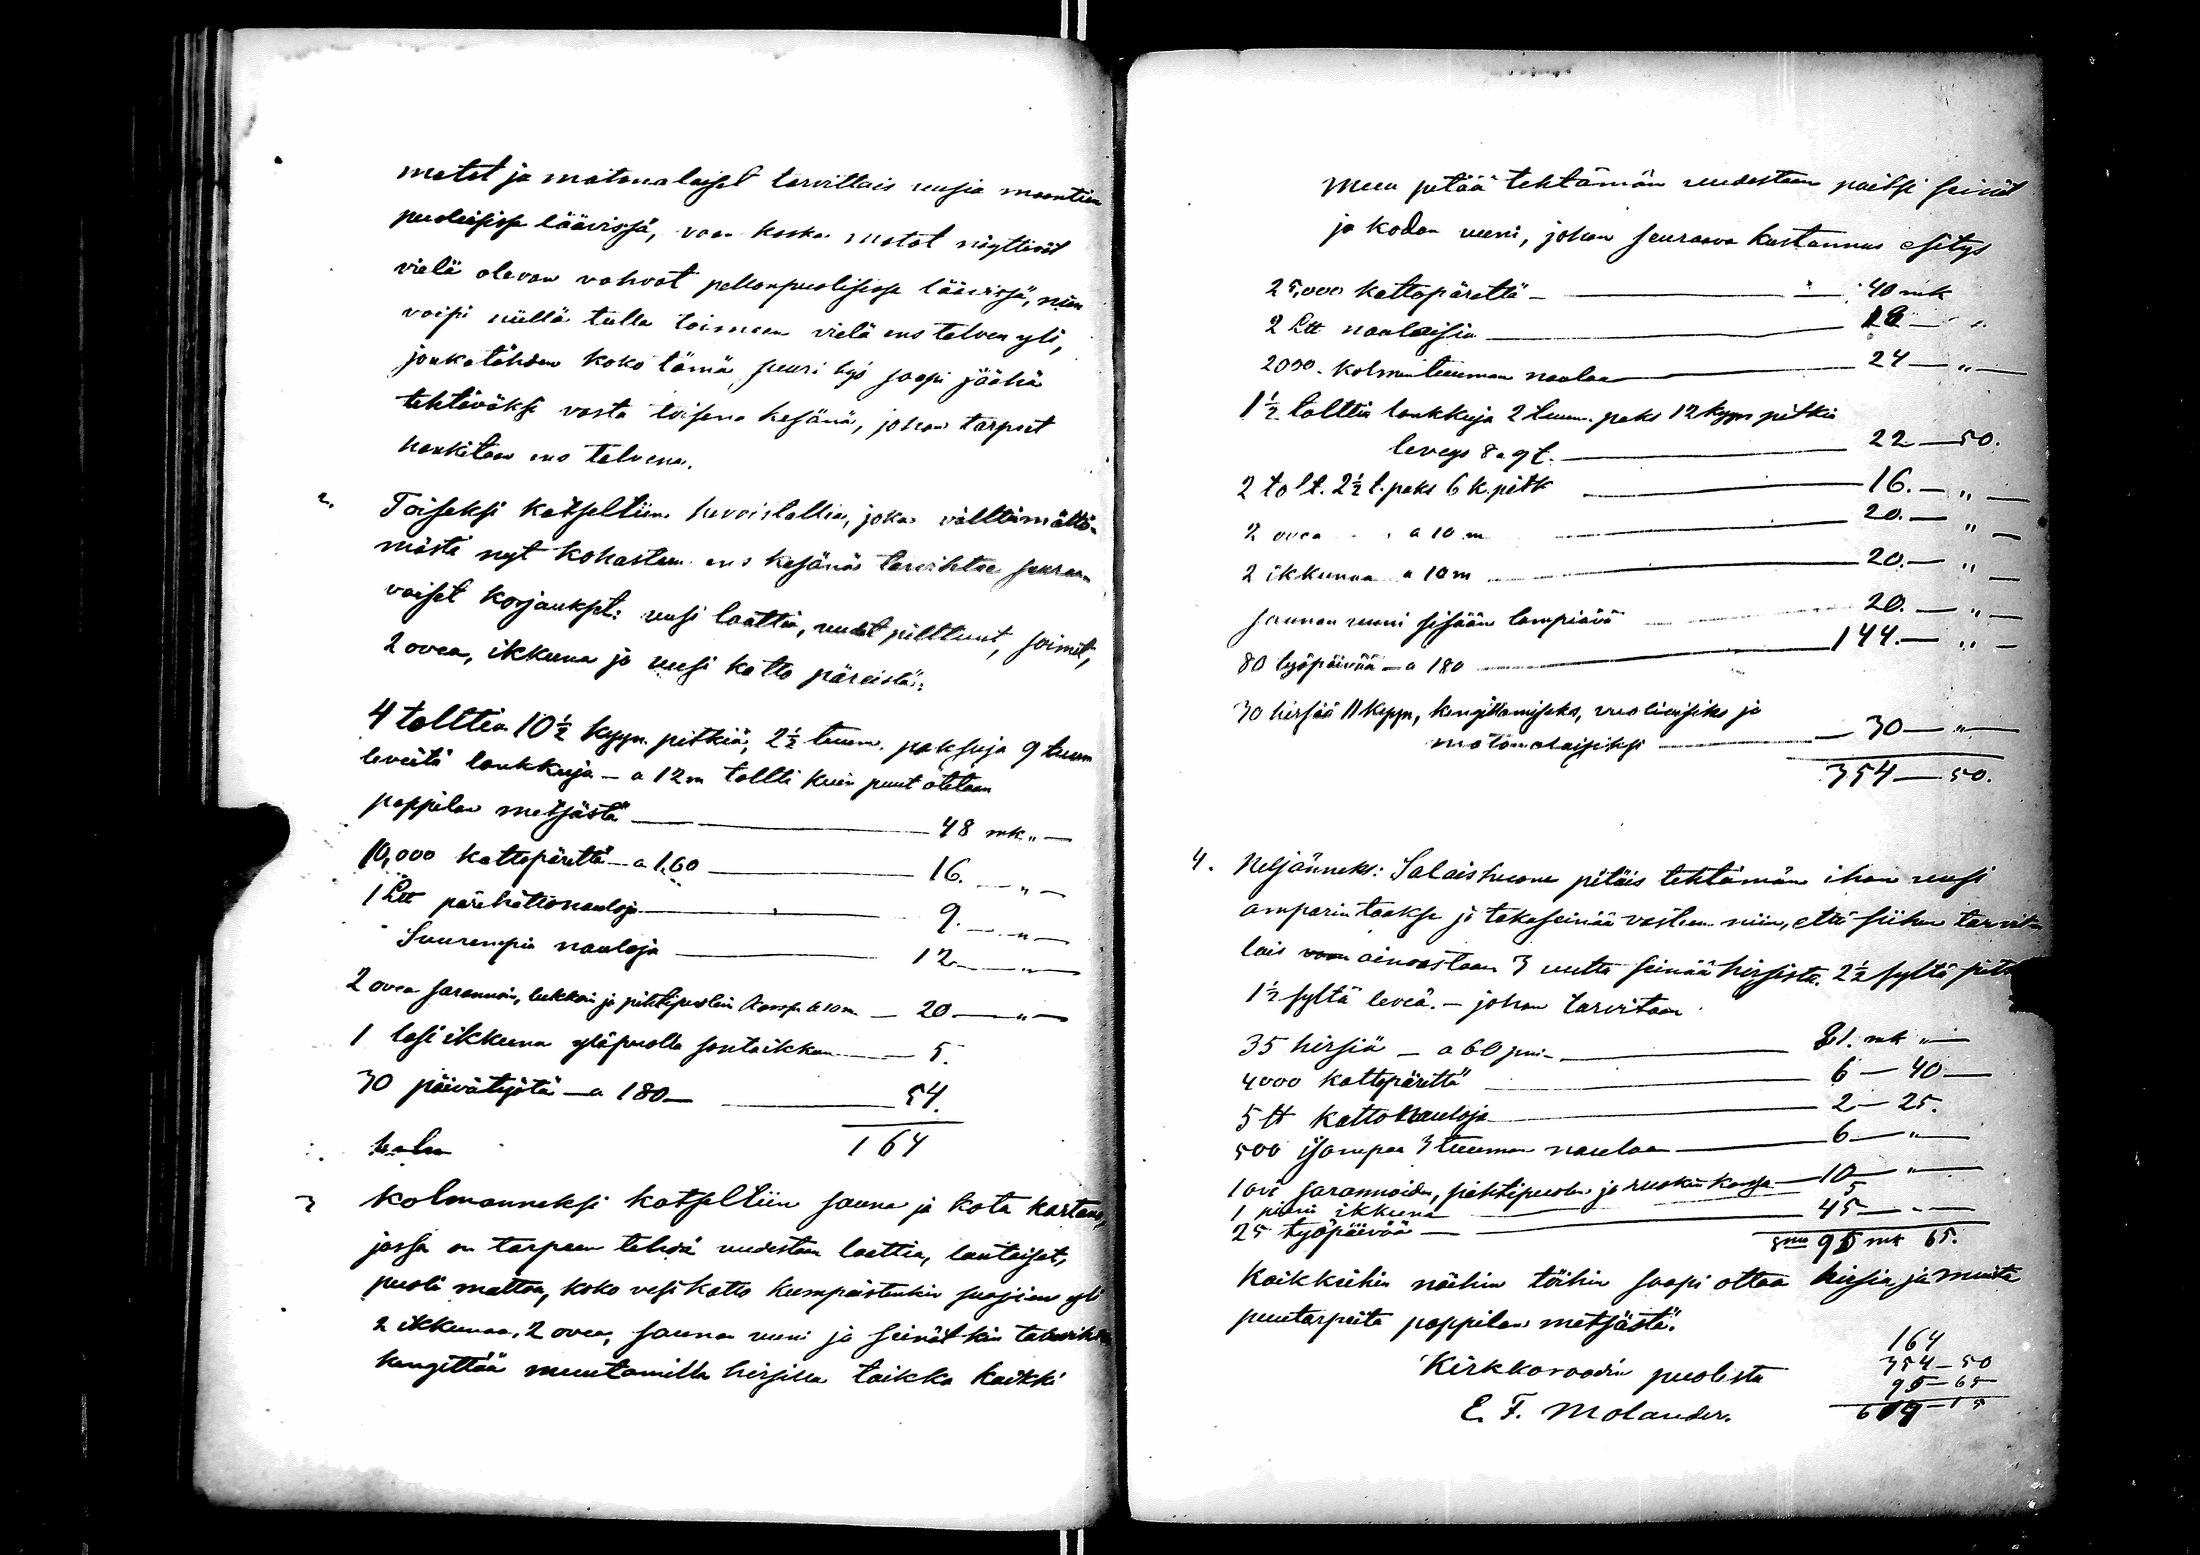 matot ja matonalaiset tarvittais uusia maantien
puoleisissa läävissä, vaan koska matot näyttivät
vielä olevan vahvat pellonpuolisissa läävissä, niin
voipi niillä tulla toimeen vielä ens talven yli,
jonkatähden koko tämä suuri työ saapi jäähä
tehtäväksi vasta toisena kesänä, johon tarpeet
hankitaan ens talvena.
2. Toiseksi katseltiin hevoistallia, joka välttämättö-
mästi nyt kohastam ens kesänä tarvihtee seuraa-
vaiset korjaukset: uusi laattia, uudet pilttuut, soimet,
2 ovea, ikkuna ja uusi katto päreistä:
4 tolttia 10½ kyyn. pitkiä, 2½ tuum. paksuja 9 tuum
leveitä lankkuja - a 12 m toltti kuin puut otetaan
pappilan metsästä — 48 mk „ —
10,000 kattopärettä - a 1,60 — 16. — „ —
1 Ltt pärekattonauloja — 9. — „ —
Suurempia nauloja — 12 — „ —
2 ovea sarannoin, lukkoin ja pihtipuolein kanssa a 10 m — 20 — „ —
1 lasi ikkuna yläpuolla sontaikkun — 5.
30 päivätyötä - a 180 — 54.
164
3 Kolmanneksi katseltiin sauna ja kota kartano,
jossa on tarpeen tehdä uudestaan laattia, lautaiset,
puoli mattoa, koko vesikatto kumpaistenkin suojien yli
2 ikkunaa, 2 ovea, saunan uuni ja seinät kin
kengittää muutamilla hirsillä taikka kaikki
muu pitää tehtämän uudestaan paitsi seinät
ja kodan uuni, johon seuraava kustannus esitys
25,000 kattopärettä — 40 mk
2 Ltt naulaisia — 18 — „
2000 kolmen tuuman naulaa — 24 — „ —
1½ tolttia lankkuja 2 tuum. paks 12 kyyn pitkiä
leveys 8 a 9 t. — 22 — 50.
2 tolt. 2½ t. paks 6 k. pitk — 16. — „ —
2 ovea a 10 m — 20. — „ —
2 ikkunaa a 10 m — 20. — „ —
saunan uuni sisään lämpiävä — 20. — „ —
80 työpäivää - a 180 — 144. — „ —
30 hirsiä 11 kyyn, kengittämiseks, vuoliaisiks ja
matonalaisiksi — 30 — „ —
354 — 50.
4. Neljänneks: Salaishuone pitäis tehtämän ihan uusi
amparin taakse ja takaseinää vasten niin, että siihen tarvit-
tais vaan ainoastaan 3 uutta seinää hirsistä 2½ syltä pitk
1½ syltä leveä. - johon tarvitaan
35 hirsiä - a 60 pni - — 21. mk „ —
4000 kattopärettä — 6 — 40 —
5 ℔ kattonauloja — 2 — 25.
500 isompaa 3 tuuman naulaa — 6 — „ —
1 ovi sarannoiden, pihtipuolen ja ruokin kanssa — 10 — „ —
1 pieni ikkuna — 5
25 työpäivää — 45 — „ —
Sma 95 mk 65.
Kaikkiihin näihin töihin saapi ottaa hirsiä ja muita
puutarpeita pappilan metsästä.
164
Kirkkoraadin puolesta 354 - 50
95 - 65
E. F. Molander. 614 - 15